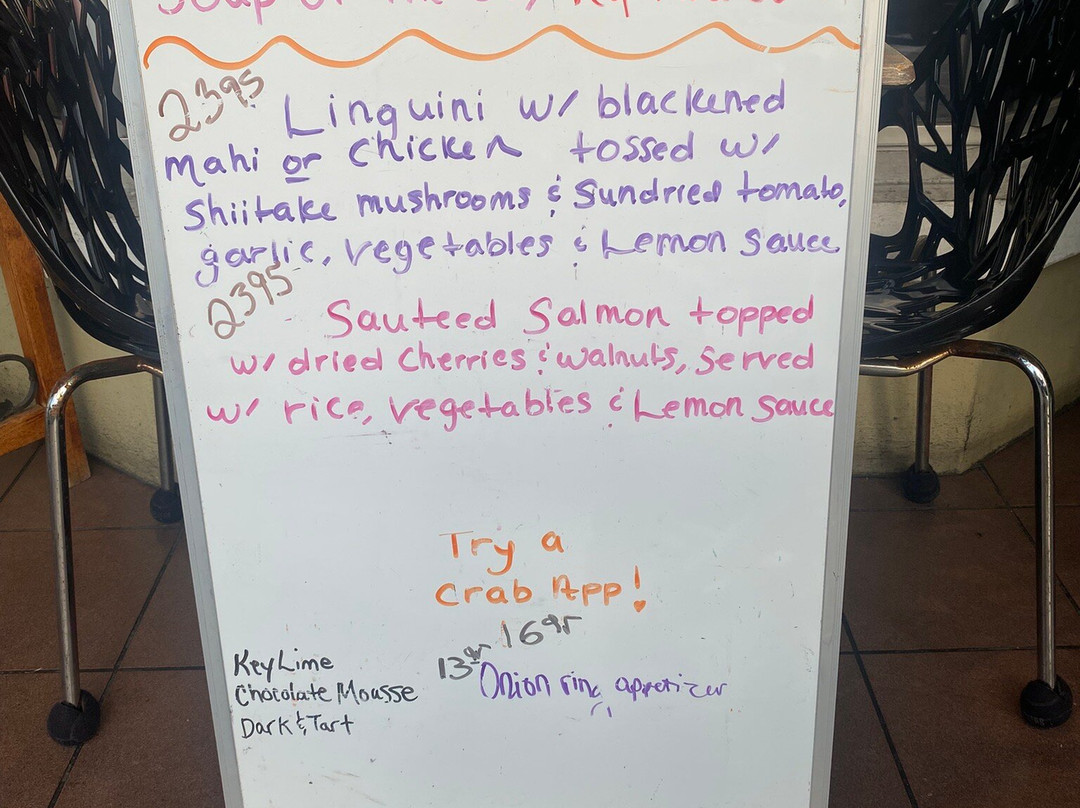 Soup of the Day
2395
Linguini w/ blackened
mahi or chicken tossed w/
Shiitake mushrooms & Sundried tomato,
garlic, vegetables & Lemon Sauce
2395
Sauteed Salmon topped
w/ dried Cherries & walnuts, Served
w/ rice, vegetables & Lemon Sauce
Try a
Crab App!
1695
1395 Onion ring appetizer
Key Lime
Chocolate Mousse
Dark & Tart